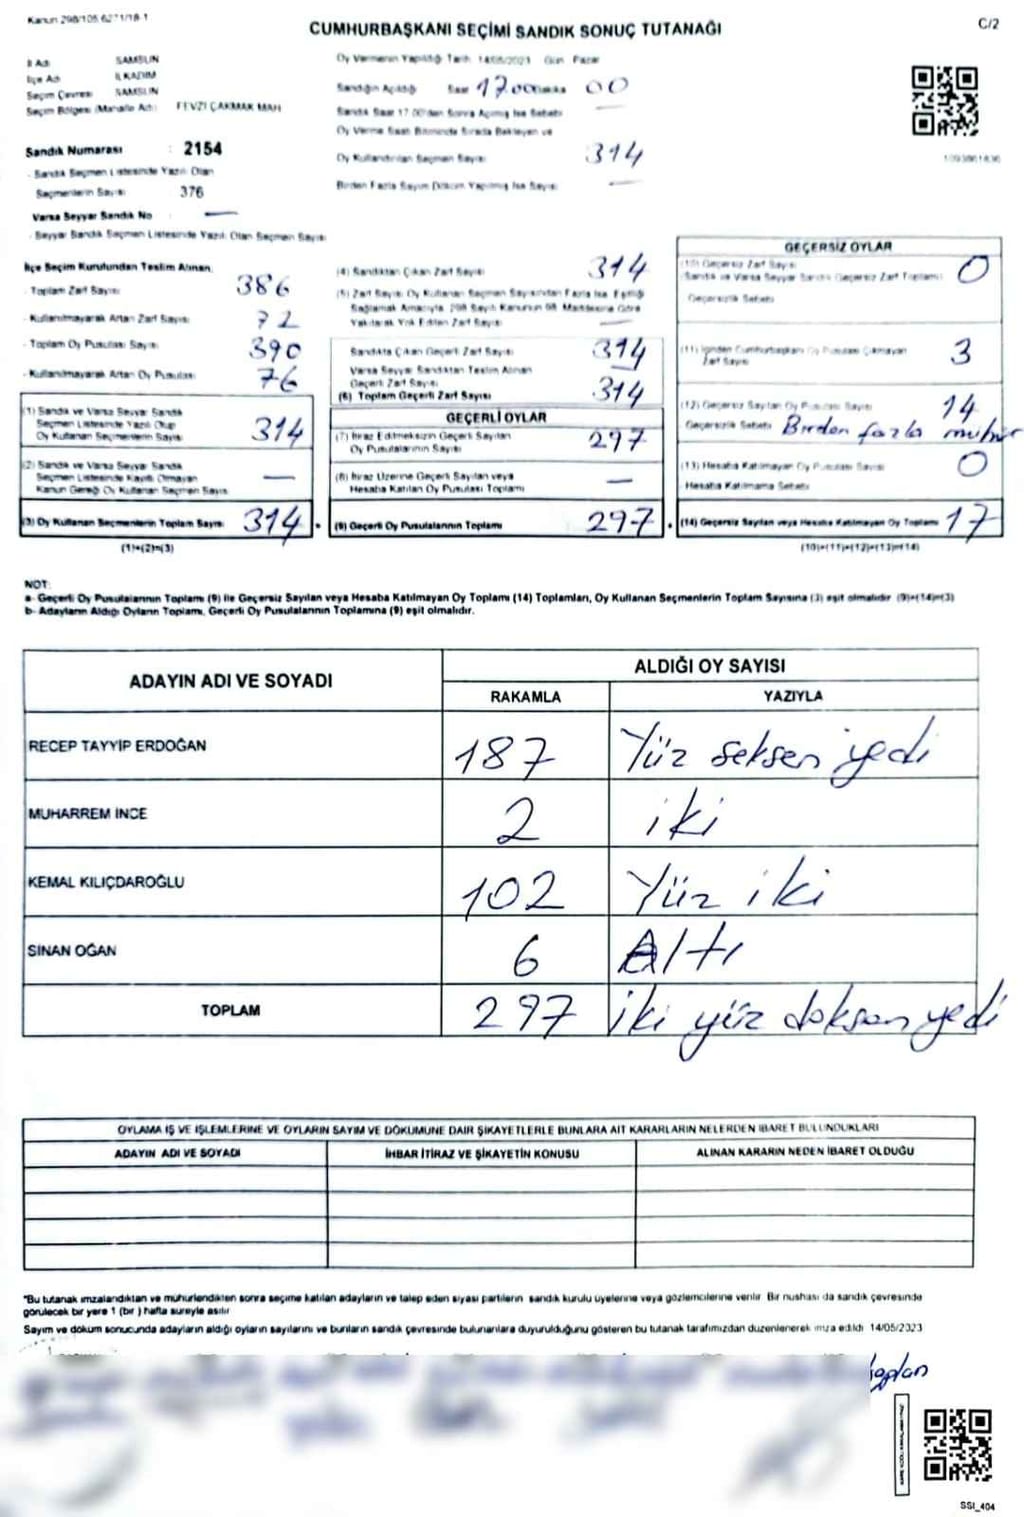 Kanun 298/105 6271/18-1
CUMHURBAŞKANI SEÇİMİ SANDIK SONUÇ TUTANAĞI
C/2
İl Adı SAMSUN
İlçe Adı İLKADIM
Seçim Çevresi SAMSUN
Seçim Bölgesi (Mahalle Adı) FEVZİ ÇAKMAK MAH
Sandık Numarası : 2154
- Sandık Seçmen Listesinde Yazılı Olan
Seçmenlerin Sayısı 376
Varsa Seyyar Sandık No : —
- Seyyar Sandık Seçmen Listesinde Yazılı Olan Seçmen Sayısı
Oy Vermenin Yapıldığı Tarih 14/05/2023 Gün Pazar
Sandığın Açıldığı Saat 17.00 Dakika 00
Sandık Saat 17.00'den Sonra Açılmış İse Sebebi —
Oy Verme Saati Bitiminde Sırada Bekleyen ve
Oy Kullandırılan Seçmen Sayısı 314
Birden Fazla Sayım Döküm Yapılmış İse Sayısı —
İlçe Seçim Kurulundan Teslim Alınan:
- Toplam Zarf Sayısı 386
- Kullanılmayarak Artan Zarf Sayısı 72
- Toplam Oy Pusulası Sayısı 390
- Kullanılmayarak Artan Oy Pusulası 76
(1) Sandık ve Varsa Seyyar Sandık
Seçmen Listesinde Yazılı Olup
Oy Kullanan Seçmenlerin Sayısı 314
(2) Sandık ve Varsa Seyyar Sandık
Seçmen Listesinde Kayıtlı Olmayan
Kanun Gereği Oy Kullanan Seçmen Sayısı —
(3) Oy Kullanan Seçmenlerin Toplam Sayısı 314
(1)+(2)=(3)
(4) Sandıktan Çıkan Zarf Sayısı 314
(5) Zarf Sayısı Oy Kullanan Seçmen Sayısından Fazla İse, Eşitliği
Sağlamak Amacıyla, 298 Sayılı Kanunun 98. Maddesine Göre
Yakılarak Yok Edilen Zarf Sayısı —
Sandıkta Çıkan Geçerli Zarf Sayısı 314
Varsa Seyyar Sandıktan Teslim Alınan
Geçerli Zarf Sayısı —
(6) Toplam Geçerli Zarf Sayısı 314
GEÇERLİ OYLAR
(7) İtiraz Edilmeksizin Geçerli Sayılan
Oy Pusulalarının Sayısı 297
(8) İtiraz Üzerine Geçerli Sayılan veya
Hesaba Katılan Oy Pusulası Toplamı —
(9) Geçerli Oy Pusulalarının Toplamı 297
GEÇERSİZ OYLAR
(10) Geçersiz Zarf Sayısı
(Sandık ve Varsa Seyyar Sandık Geçersiz Zarf Toplamı) 0
Geçersizlik Sebebi
(11) İçinden Cumhurbaşkanı Oy Pusulası Çıkmayan
Zarf Sayısı 3
(12) Geçersiz Sayılan Oy Pusulası Sayısı 14
Geçersizlik Sebebi Birden fazla mühür
(13) Hesaba Katılmayan Oy Pusulası Sayısı 0
Hesaba Katılmama Sebebi
(14) Geçersiz Sayılan veya Hesaba Katılmayan Oy Toplamı 17
(10)+(11)+(12)+(13)=(14)
NOT:
a- Geçerli Oy Pusulalarının Toplamı (9) ile Geçersiz Sayılan veya Hesaba Katılmayan Oy Toplamı (14) Toplamları, Oy Kullanan Seçmenlerin Toplam Sayısına (3) eşit olmalıdır. (9)+(14)=(3)
b- Adayların Aldığı Oyların Toplamı, Geçerli Oy Pusulalarının Toplamına (9) eşit olmalıdır.
ADAYIN ADI VE SOYADI
ALDIĞI OY SAYISI
RAKAMLA YAZIYLA
RECEP TAYYİP ERDOĞAN 187 Yüz seksen yedi
MUHARREM İNCE 2 iki
KEMAL KILIÇDAROĞLU 102 Yüz iki
SİNAN OĞAN 6 Altı
TOPLAM 297 iki yüz doksan yedi
OYLAMA İŞ VE İŞLEMLERİNE VE OYLARIN SAYIM VE DÖKÜMÜNE DAİR ŞİKAYETLERLE BUNLARA AİT KARARLARIN NELERDEN İBARET BULUNDUKLARI
ADAYIN ADI VE SOYADI İHBAR İTİRAZ VE ŞİKAYETİN KONUSU ALINAN KARARIN NEDEN İBARET OLDUĞU
*Bu tutanak imzalandıktan ve mühürlendikten sonra seçime katılan adayların ve talep eden siyasi partilerin sandık kurulu üyelerine veya gözlemcilerine verilir. Bir nüshası da sandık çevresinde
görülecek bir yere 1 (bir) hafta süreyle asılır.
Sayım ve döküm sonucunda adayların aldığı oyların sayılarını ve bunların sandık çevresinde bulunanlara duyurulduğunu gösteren bu tutanak tarafımızdan düzenlenerek imza edildi. 14/05/2023
SSI_404